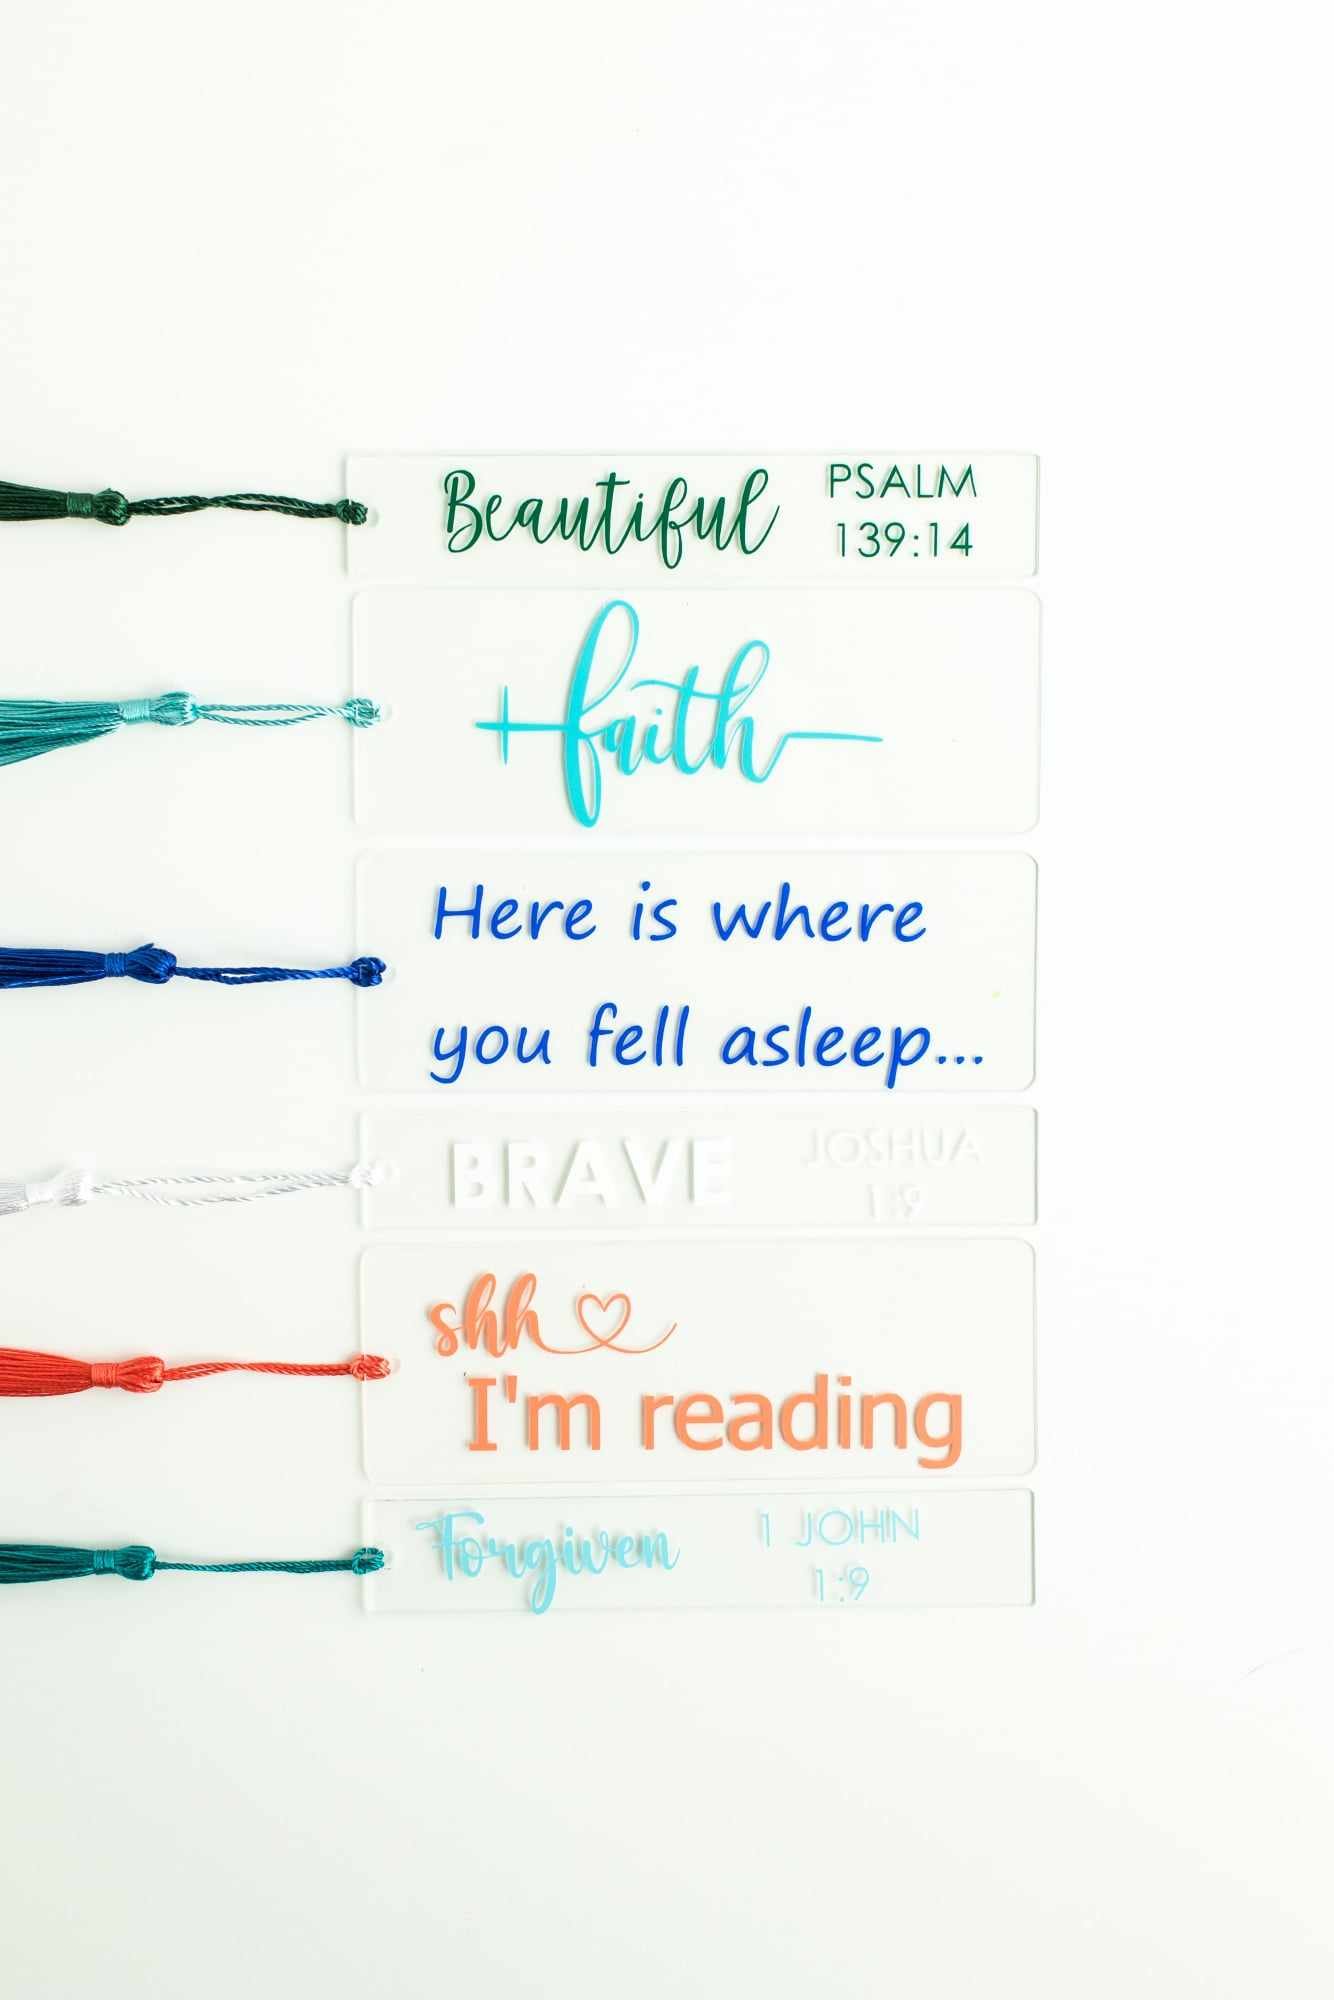 Beautiful
PSALM
139:14
faith
Here is where
you fell asleep...
BRAVE
JOSHUA
1:9
shh
I'm reading
Forgiven
1 JOHN
1:9